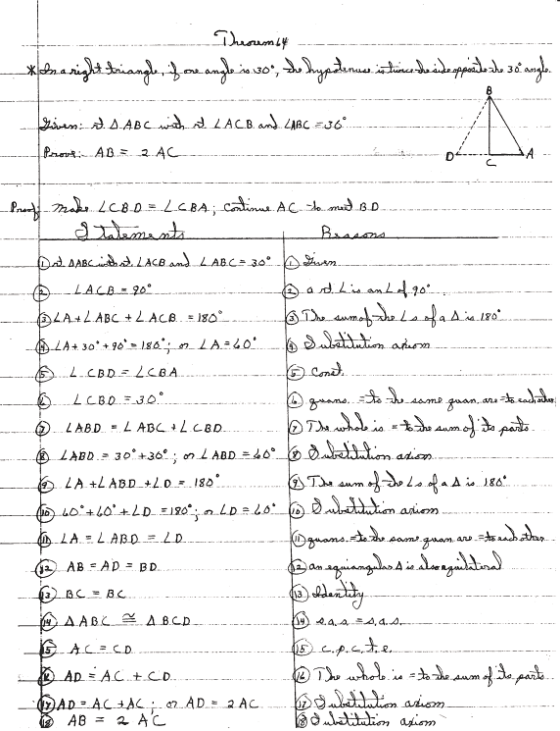 Theorem 64
* In a right triangle, if one angle is 30°, the hypotenuse is twice the side opposite the 30° angle.
Given: rt Δ ABC with rt ∠ACB and ∠ABC = 30°
Prove: AB = 2 AC
B
D C A
Proof: Make ∠CBD = ∠CBA; continue AC to meet BD
Statements Reasons
① rt ΔABC with rt ∠ACB and ∠ABC = 30° ① Given
② ∠ACB = 90° ② a rt ∠ is an ∠ of 90°.
③ ∠A + ∠ABC + ∠ACB = 180° ③ The sum of the ∠s of a Δ is 180°
④ ∠A + 30° + 90° = 180°; or ∠A = 60° ④ Substitution axiom
⑤ ∠CBD = ∠CBA ⑤ Const.
⑥ ∠CBD = 30° ⑥ quans. = to the same quan. are = to each other
⑦ ∠ABD = ∠ABC + ∠CBD ⑦ The whole is = to the sum of its parts
⑧ ∠ABD = 30° + 30°; or ∠ABD = 60° ⑧ Substitution axiom
⑨ ∠A + ∠ABD + ∠D = 180° ⑨ The sum of the ∠s of a Δ is 180°
⑩ 60° + 60° + ∠D = 180°; or ∠D = 60° ⑩ Substitution axiom
⑪ ∠A = ∠ABD = ∠D ⑪ quans. = to the same quan are = to each other
⑫ AB = AD = BD ⑫ an equiangular Δ is also equilateral
⑬ BC = BC ⑬ Identity
⑭ ΔABC ≅ ΔBCD ⑭ s.a.s. = s.a.s.
⑮ AC = CD ⑮ c.p.c.t.e.
⑯ AD = AC + CD ⑯ The whole is = to the sum of its parts
⑰ AD = AC + AC; or AD = 2 AC ⑰ Substitution axiom
⑱ AB = 2 AC ⑱ Substitution axiom